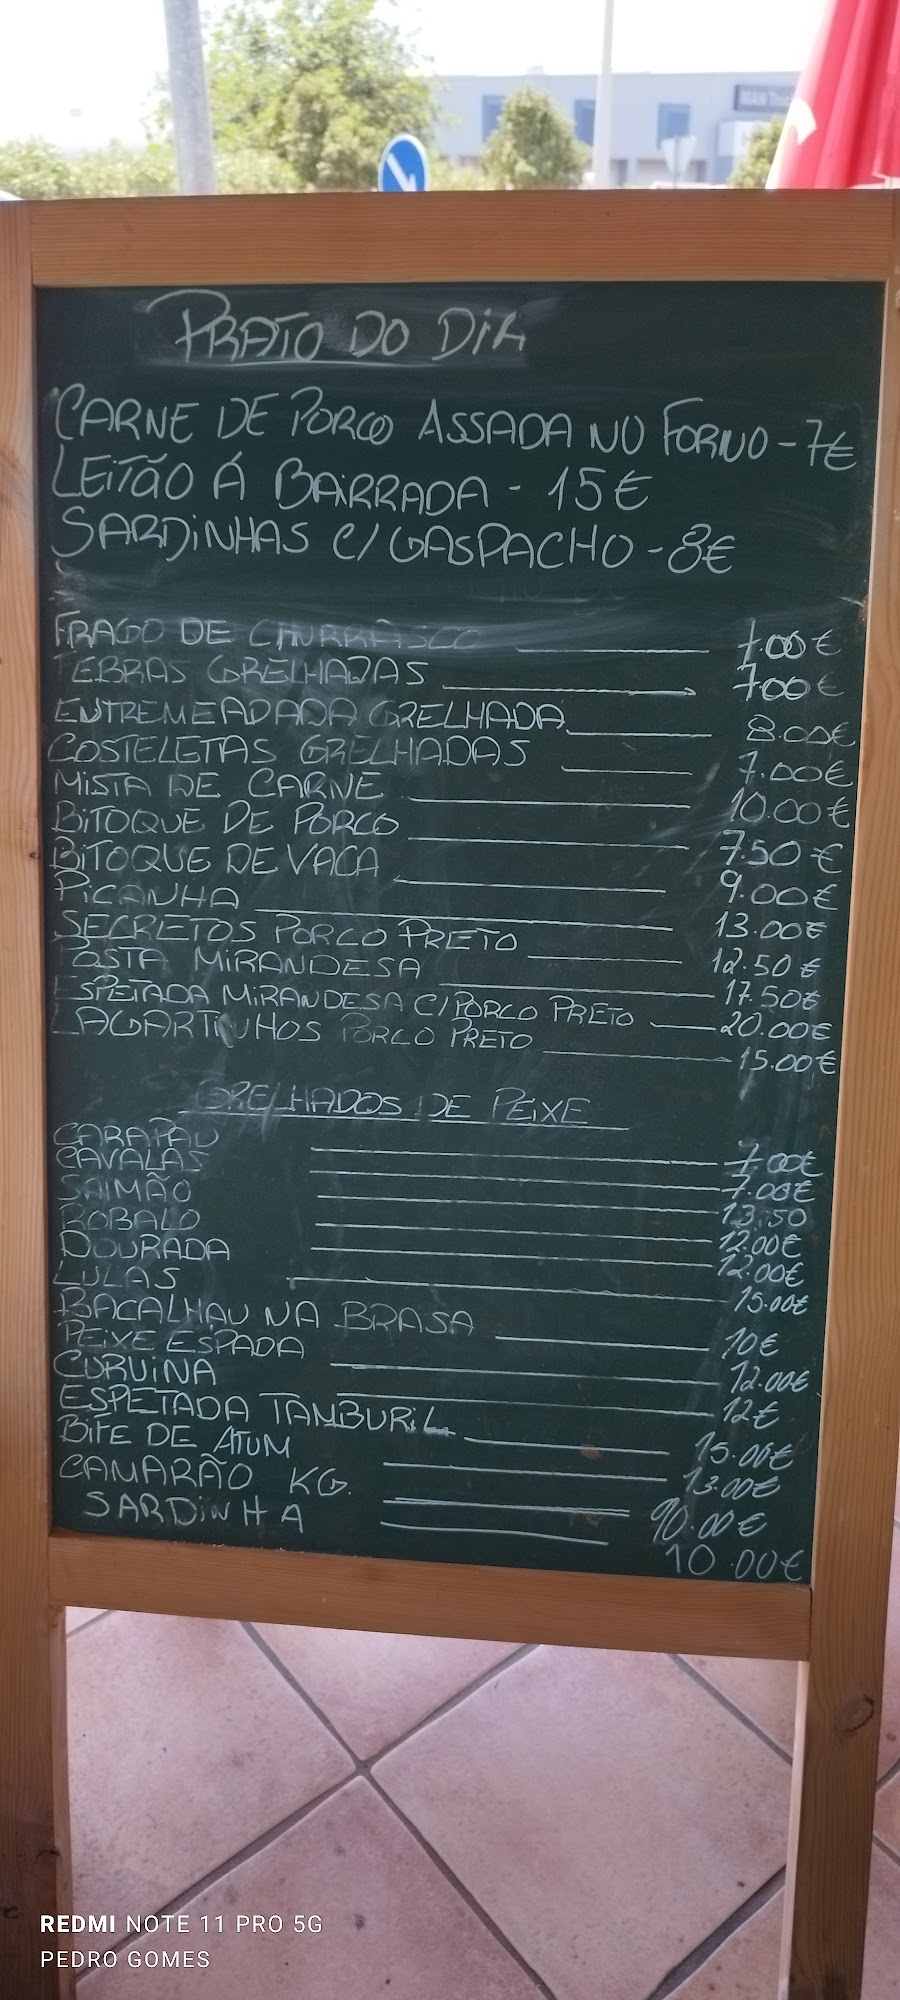 PRATO DO DIA
CARNE DE PORCO ASSADA NO FORNO - 7€
LEITÃO Á BAIRRADA - 15€
SARDINHAS C/ GASPACHO - 8€
FRAGO DE CHURRASCO 7.00€
FEBRAS GRELHADAS 700€
ENTREMEADADA GRELHADA 8.00€
COSTELETAS GRELHADAS 7.00€
MISTA DE CARNE 10.00€
BITOQUE DE PORCO 7.50€
BITOQUE DE VACA 9.00€
PICANHA 13.00€
SECRETOS PORCO PRETO 12.50€
POSTA MIRANDESA 17.50€
ESPETADA MIRANDESA C/PORCO PRETO 20.00€
LAGARTINHOS PORCO PRETO 15.00€
GRELHADOS DE PEIXE
CARAPAU 7.00€
CAVALAS 7.00€
SALMÃO 13.50
ROBALO 12.00€
DOURADA 12.00€
LULAS 15.00€
BACALHAU NA BRASA 10€
PEIXE ESPADA 12.00€
CURVINA 12€
ESPETADA TAMBURIL 15.00€
BIFE DE ATUM 13.00€
CAMARÃO KG. 90.00€
SARDINHA 10.00€
MAN
REDMI NOTE 11 PRO 5G
PEDRO GOMES